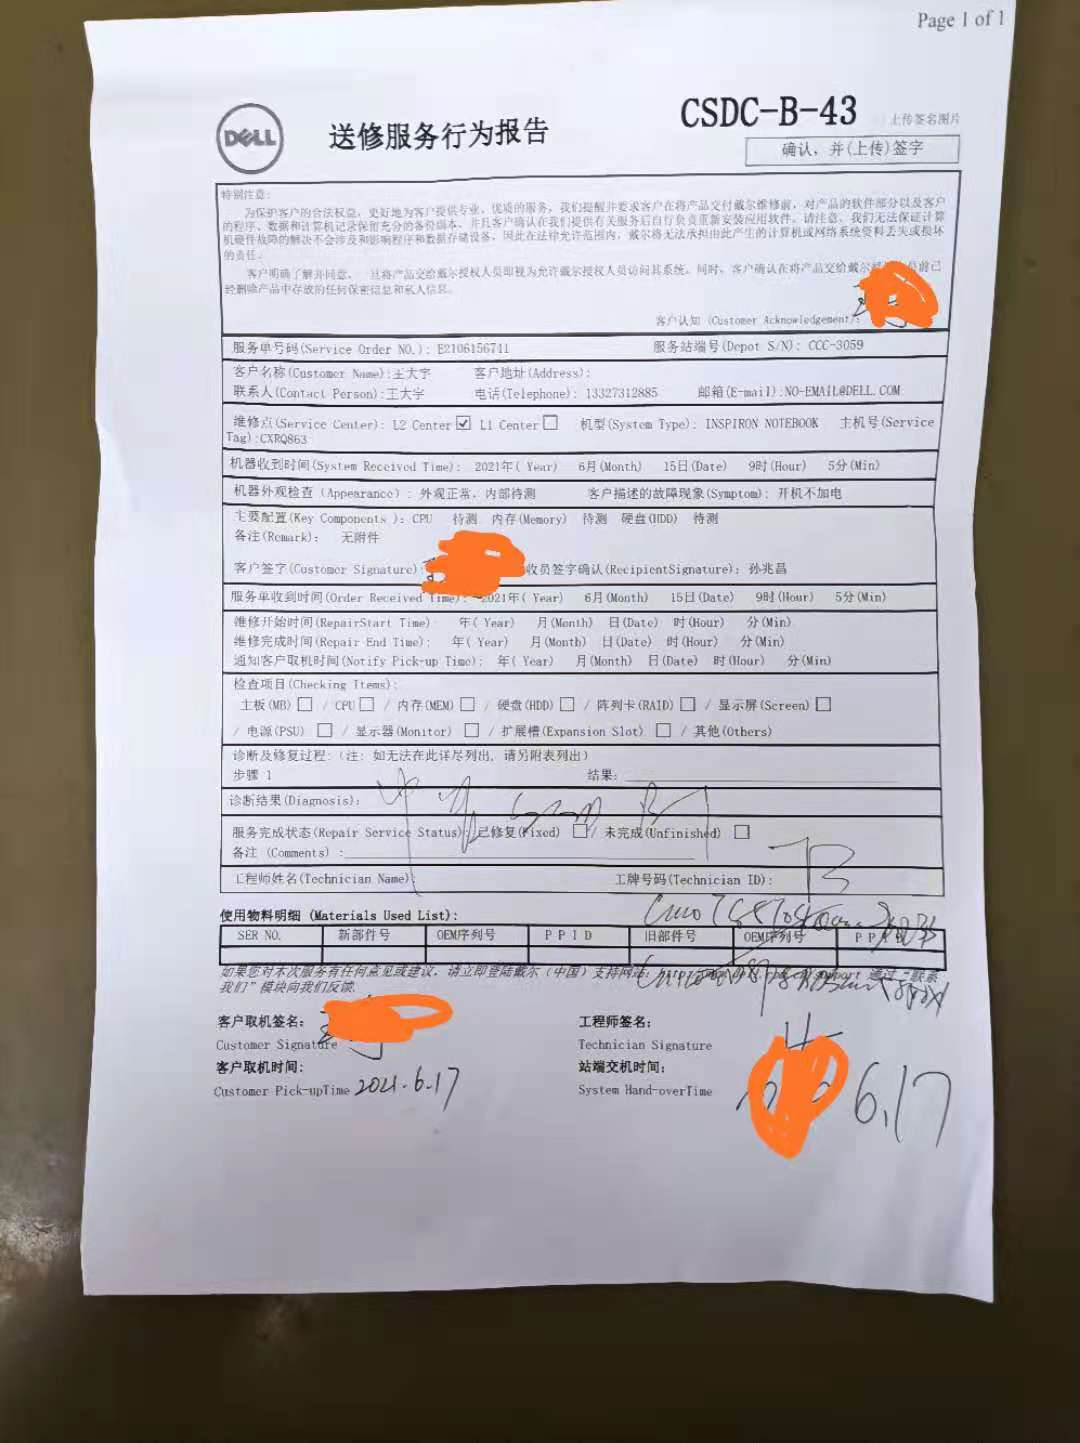 Page 1 of 1
DELL
送修服务行为报告
CSDC-B-43
上传签名图片
确认，并(上传)签字
特别注意:
为保护客户的合法权益，更好地为客户提供专业、优质的服务，我们提醒并要求客户在将产品交付戴尔维修前，对产品的软件部分以及客户
的程序、数据和计算机记录保留充分的备份副本，并且客户确认在我们提供有关服务后自行负责重新安装应用软件。请注意，我们无法保证计算
机硬件故障的解决不会涉及和影响程序和数据存储设备，因此在法律允许范围内，戴尔将无法承担由此产生的计算机或网络系统资料丢失或损坏
的责任。
客户明确了解并同意，一旦将产品交给戴尔授权人员即视为允许戴尔授权人员访问其系统。同时，客户确认在将产品交给戴尔 前已
经删除产品中存放的任何保密信息和私人信息。
客户认知 (Customer Acknowledgement):
服务单号码(Service Order NO.): E2106156741 服务站端号(Depot S/N): CCC-3059
客户名称(Customer Name):王大字 客户地址(Address):
联系人(Contact Person):王大字 电话(Telephone): 13327312885 邮箱(E-mail):NO-EMAIL@DELL.COM
维修点(Service Center): L2 Center L1 Center 机型(System Type): INSPIRON NOTEBOOK 主机号(Service
Tag):CXRQ863
机器收到时间(System Received Time): 2021年( Year) 6月(Month) 15日(Date) 9时(Hour) 5分(Min)
机器外观检查 (Appearance): 外观正常，内部待测 客户描述的故障现象(Symptom): 开机不加电
主要配置(Key Components ): CPU 待测 内存(Memory) 待测 硬盘(HDD) 待测
备注(Remark): 无附件
客户签字(Customer Signature): 收员签字确认(RecipientSignature): 孙兆昌
服务单收到时间(Order Received Time): 2021年( Year) 6月(Month) 15日(Date) 9时(Hour) 5分(Min)
维修开始时间(RepairStart Time): 年( Year) 月(Month) 日(Date) 时(Hour) 分(Min)
维修完成时间(Repair End Time): 年( Year) 月(Month) 日(Date) 时(Hour) 分(Min)
通知客户取机时间(Notify Pick-up Time): 年( Year) 月(Month) 日(Date) 时(Hour) 分(Min)
检查项目(Checking Items):
主板(MB) / CPU / 内存(MEM) / 硬盘(HDD) / 阵列卡(RAID) / 显示屏(Screen)
/ 电源(PSU) / 显示器(Monitor) / 扩展槽(Expansion Slot) / 其他(Others)
诊断及修复过程:(注: 如无法在此详尽列出, 请另附表列出)
步骤 1 结果:
诊断结果(Diagnosis):
服务完成状态(Repair Service Status): 已修复(Fixed) / 未完成(Unfinished)
备注 (Comments) :
工程师姓名(Technician Name): 工牌号码(Technician ID):
使用物料明细 (Materials Used List):
SER NO. 新部件号 OEM序列号 P P I D 旧部件号 OEM序列号 P P I D
如果您对本次服务有任何意见或建议，请立即登陆戴尔（中国）支持网站: 通过 “联系
我们” 模块向我们反馈.
客户取机签名: 工程师签名:
Customer Signature Technician Signature
客户取机时间: 站端交机时间:
Customer Pick-upTime 2021.6.17 System Hand-overTime 6.17